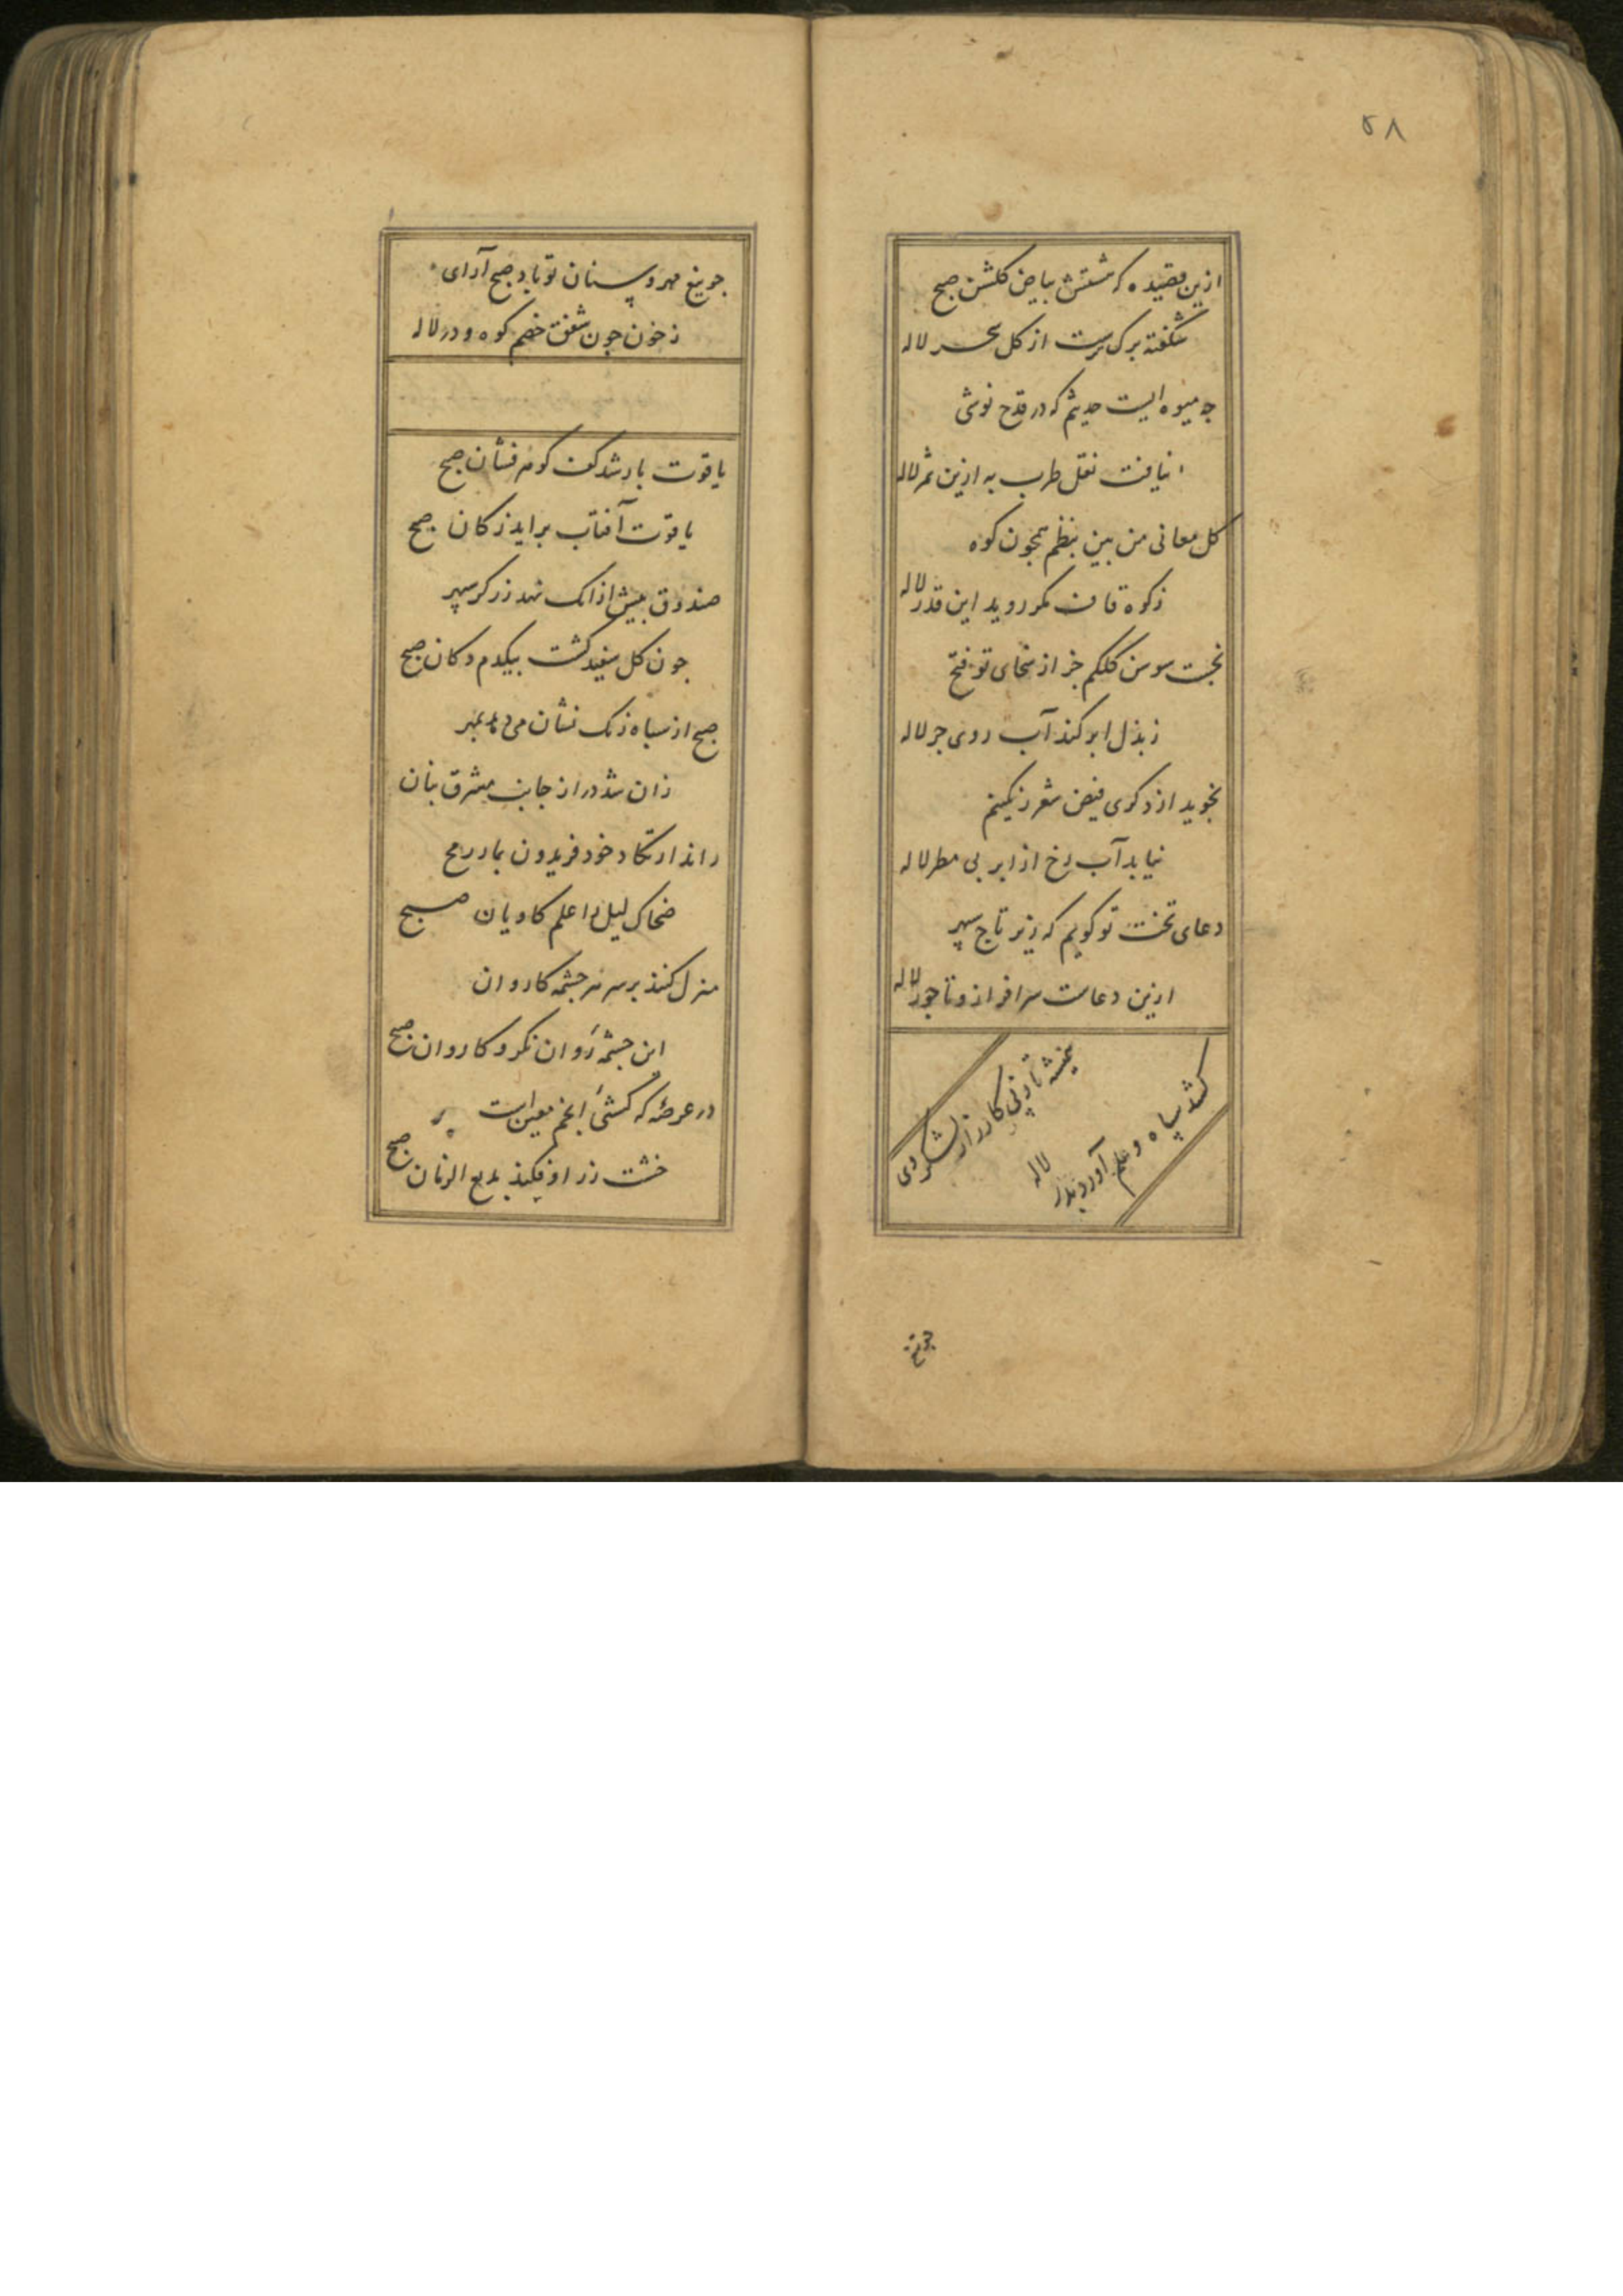 ۵۸
ازین قصیده که شستش بیاض کلشن صبح
شکفته برک ترست از کل سحر لاله
چه میوه ایست حدیثم که در قدح نوشی
نیافت نقل طرب به ازین ثمر لاله
کل معانی من بین بنظم همچون کوه
ز کوه قاف مکر روید این قدر لاله
نجست سوسن کلکم جز از سخای تو فتح
ز بذل ابر کند آب روی جر لاله
نجوید از دکری فیض شعر رنکینم
نیابد آب رخ از ابر بی مطر لاله
دعای تخت تو کویم که زیر تاج سپهر
ازین دعاست سرافراز و تاجور لاله
همیشه تا ز پی کارزار لشکر دی
کشد سپاه و علم آورد بدر لاله
جو تیغ
جو تیغ مهر و سنان تو باد صبح آرای
ز خون جون شفق خصم کوه و در لاله
یاقوت بار شد کف کوهر فشان صبح
یاقوت آفتاب براید ز کان صبح
صندوق بیش ازانک نهد زرکر سپهر
جون کل سفید کشت بیکدم دکان صبح
صبح از سیاه زنک نشان می دهد بمهر
زان شد دراز جانب مشرق بنان
راند ارتکاد خود فریدون بمار رمح
ضحاک لیل را علم کاویان صبح
منزل کنند بر سر هر جشمه کاروان
این جشمه روان نکر و کاروان صبح
در عرصه که کشتی انجم معین است
خشت زر افکند بدیع الزمان صبح